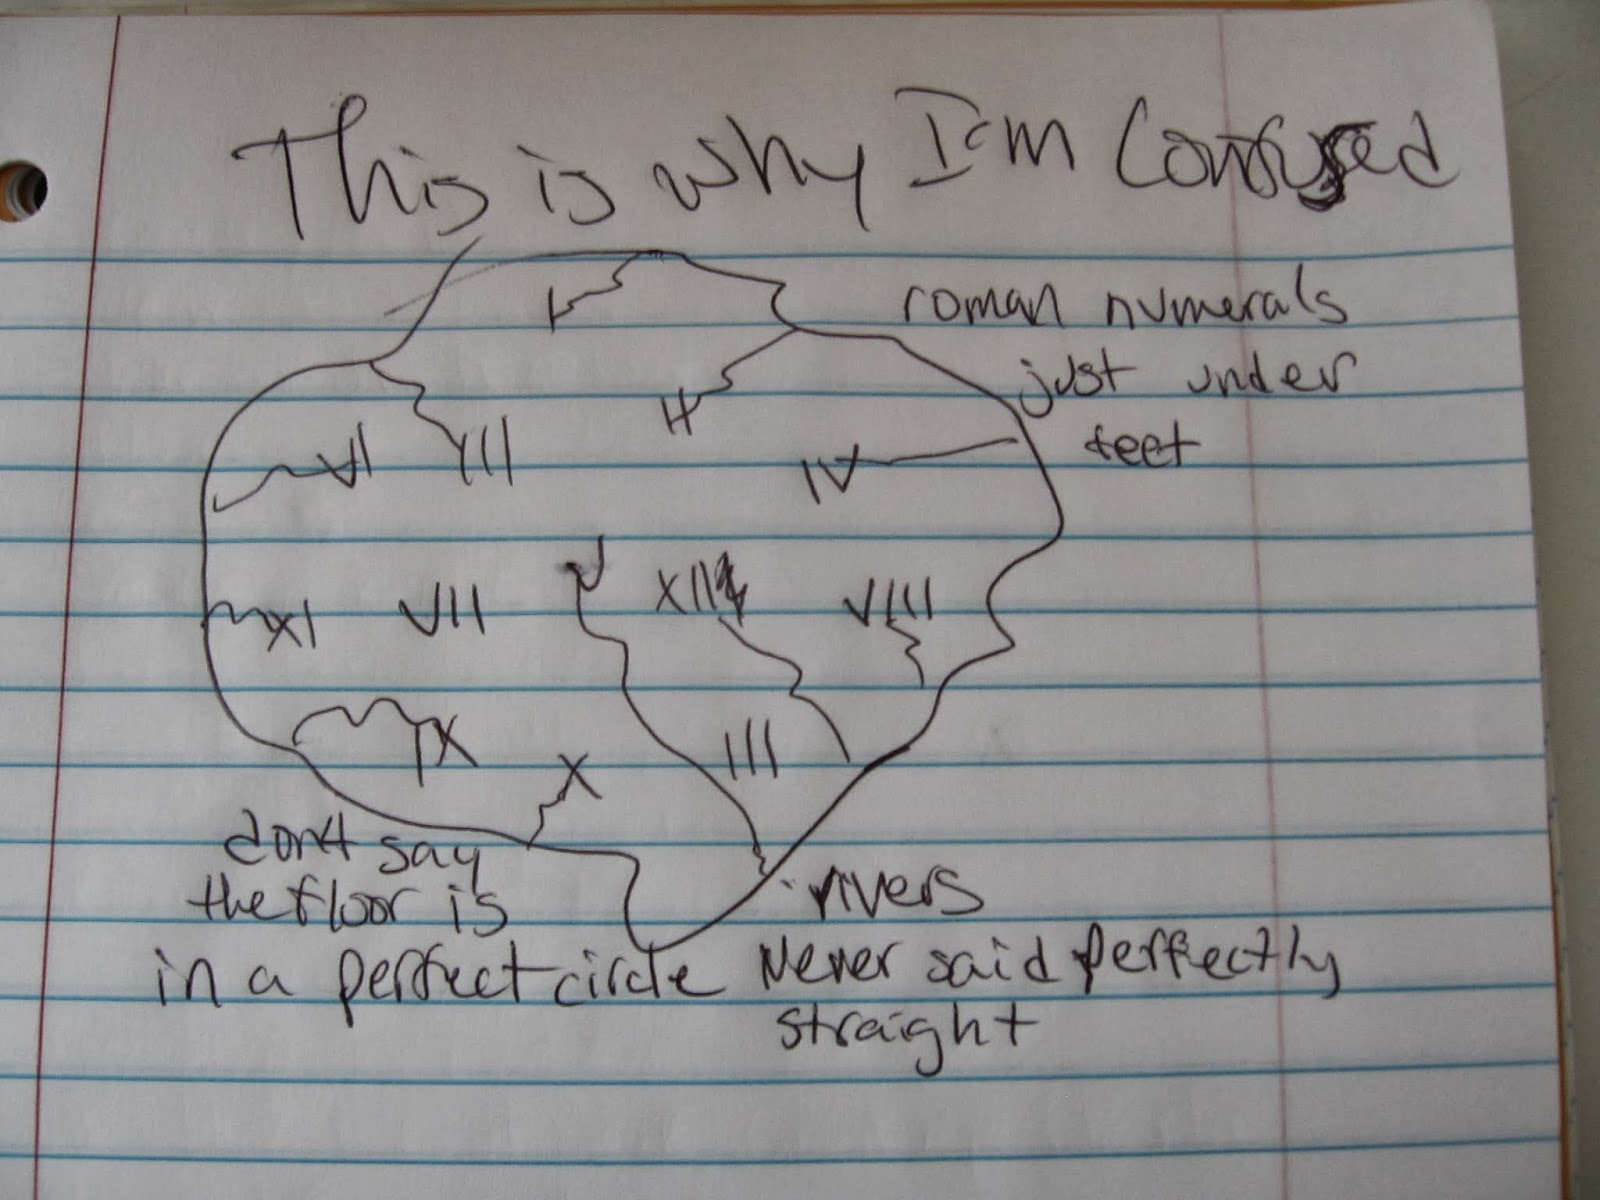 This is why I'm Confused
roman numerals
just under
feet
I
II
VI VIII
IV
V XII VIIII
XI VII
III
IX X
don't say
the floor is
in a perfect circle
rivers
Never said perfectly
straight